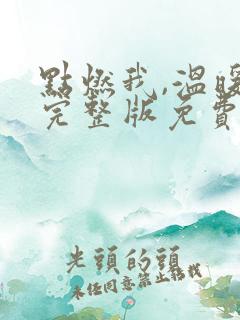 點燃我,溫暖
完整版免費
光頭的頭
未任同意禁止轉載